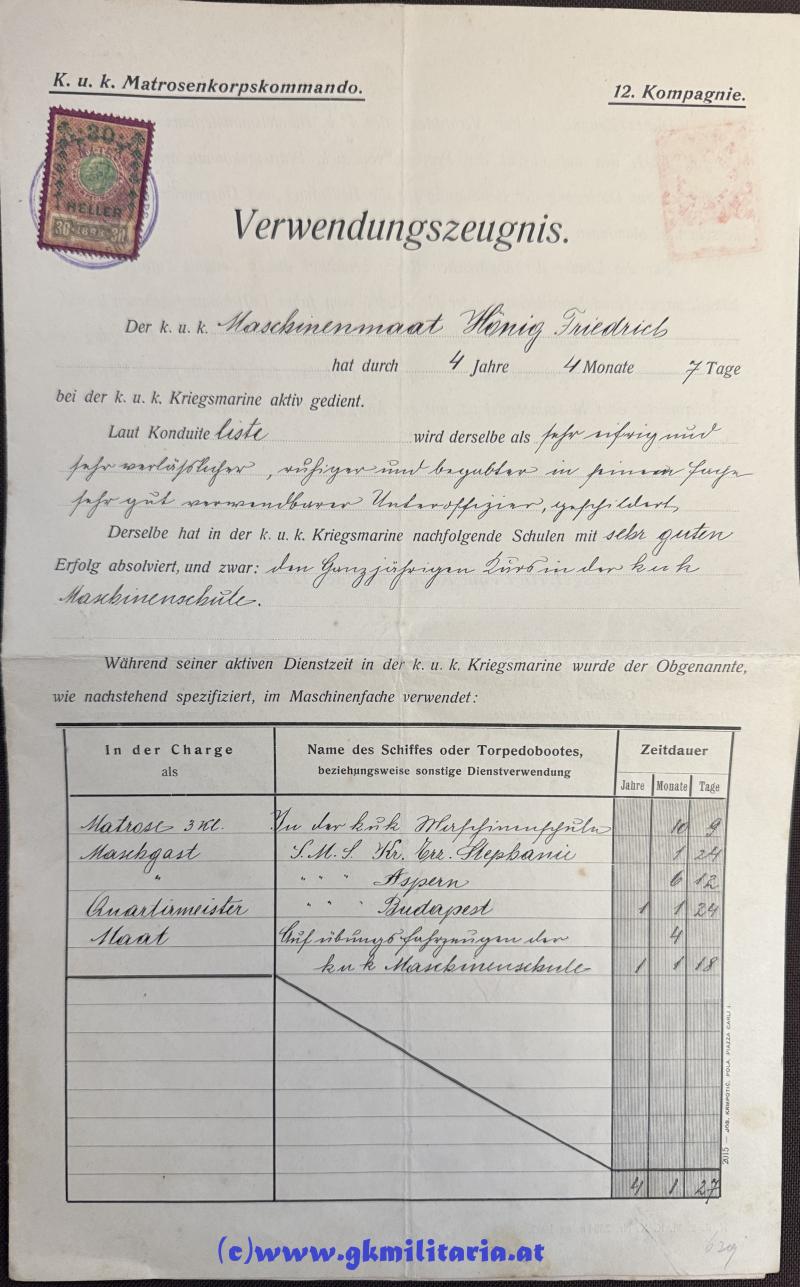 K. u. k. Matrosenkorpskommando.
12. Kompagnie.
30
HELLER
30 1898 30
Verwendungszeugnis.
Der k. u. k. Maschinenmaat Hönig Friedrich
hat durch 4 Jahre 4 Monate 7 Tage
bei der k. u. k. Kriegsmarine aktiv gedient.
Laut Konduite liste wird derselbe als sehr eifrig und
sehr verlässlicher, ruhiger und begabter in seinem Fache
sehr gut verwendbarer Unteroffizier, geschildert
Derselbe hat in der k. u. k. Kriegsmarine nachfolgende Schulen mit sehr guten
Erfolg absolviert, und zwar: den Ganzjährigen Kurs in der k u k
Maschinenschule.
Während seiner aktiven Dienstzeit in der k. u. k. Kriegsmarine wurde der Obgenannte,
wie nachstehend spezifiziert, im Maschinenfache verwendet:
In der Charge
als
Name des Schiffes oder Torpedobootes,
beziehungsweise sonstige Dienstverwendung
Zeitdauer
Jahre Monate Tage
Matrose 3 Kl. In der k u k Maschinenschule 10 9
Maschgast S. M. S. Kr. Erz. Stephanie 1 24
" " " " Aspern 6 12
Quartirmeister " " " Budapest 1 1 24
Maat Auf übungsfahrzeugen der 4
k u k Maschinenschule 1 1 18
4 1 27
2015 — JOS. KRMPOTIĆ, POLA, PIAZZA CARLI 1.
(c)www.gkmilitaria.at